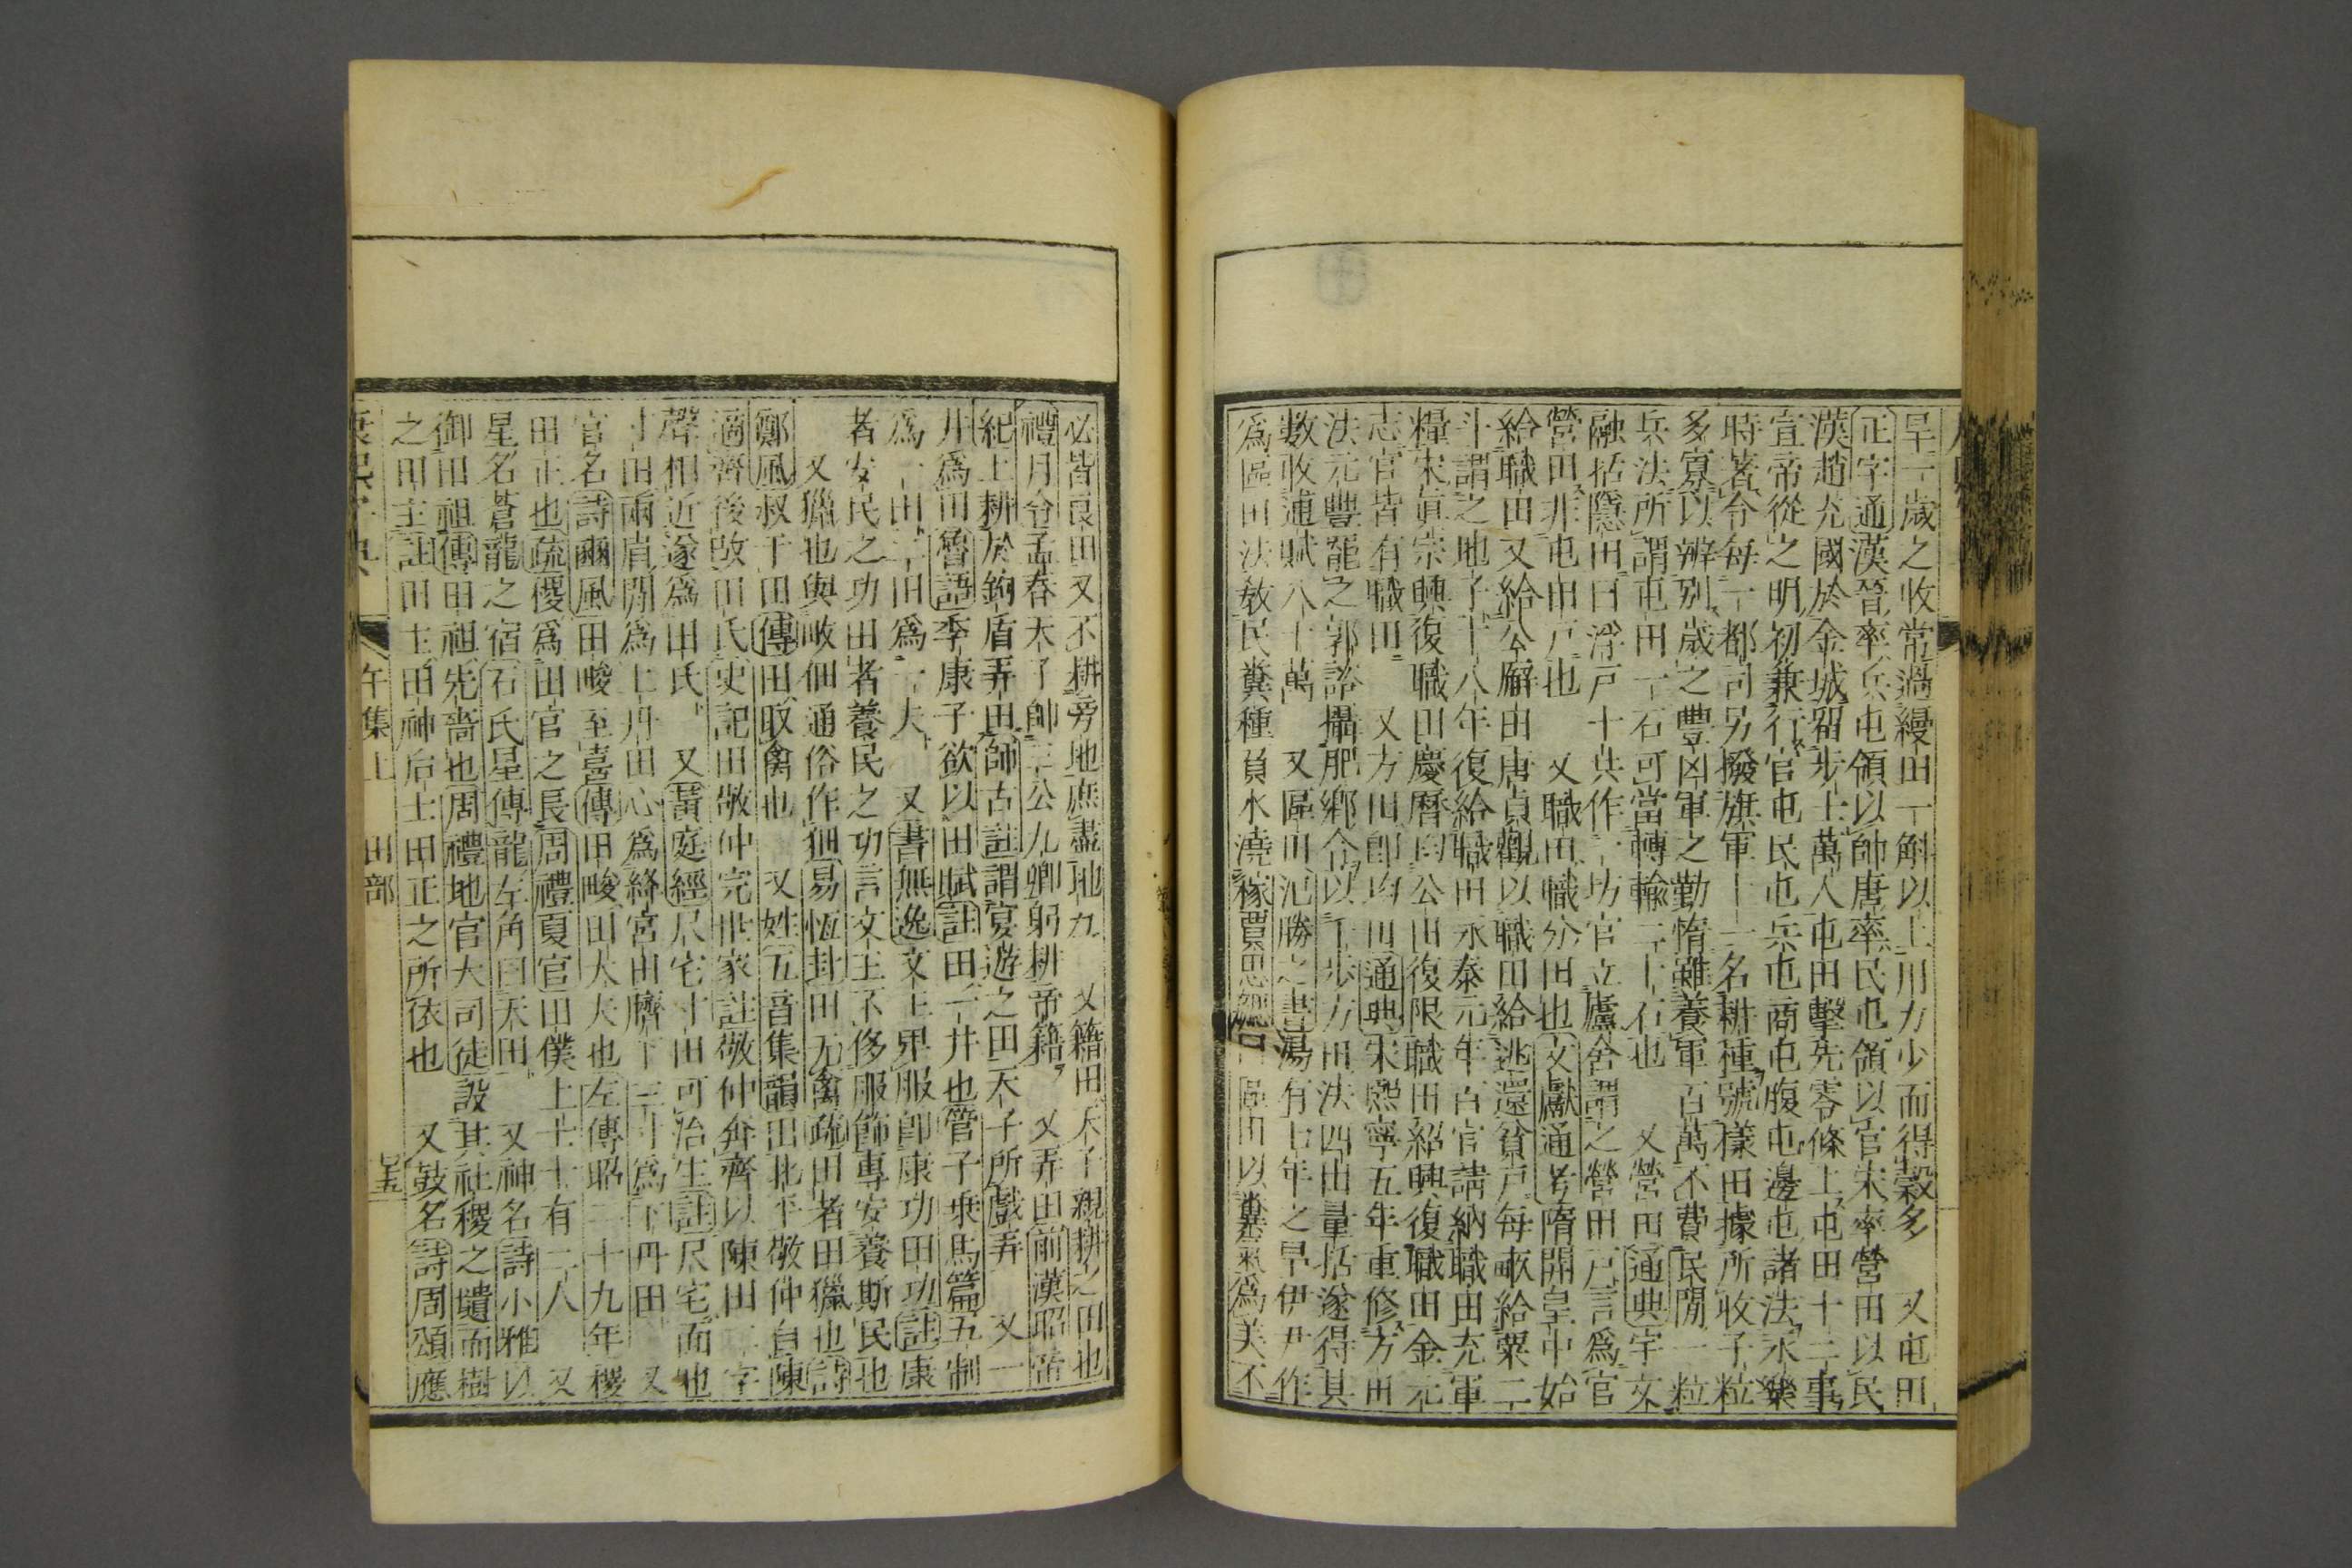 旱一歲之收常過縵田一斛以上用力少而得穀多　又屯田
正字通漢晉率兵屯領以帥唐率民屯領以官宋率營田以民
漢趙充國於金城留步士萬人屯田擊先零條上屯田十二事
宣帝從之明初兼行官屯民屯兵屯商屯腹屯邊屯諸法永樂
時著令每一都司另撥旗軍十一名耕種號樣田據所收子粒
多寡以辨別歲之豐凶軍之勤惰雖養軍百萬不費民閒一粒
兵法所謂屯田一石可當轉輸二十石也　又營田通典宇文
融括隱田曰浮戸十共作一坊官立廬舍謂之營田戸言爲官
營田非屯田戸也　又職田職分田也文獻通考隋開皇中始
給職田又給公廨田唐貞觀以職田給逃還貧戸每畝給粟二
斗謂之地子十八年復給職田永泰元年百官請納職田充軍
糧宋眞宗興復職田慶曆均公田復限職田紹興復職田金元
志官皆有職田　又方田卽均田通典宋熙寧五年重修方田
法元豐龍之郭諮攝肥鄉令以千步方田法四出量括遂得其
數收逋賦八十萬　又區田氾勝之書湯有七年之旱伊尹作
爲區田法敎民糞種負水澆稼賈思勰曰區田以糞氣爲美不
必皆良田又不耕旁地庶盡地力　又籍田天子親耕之田也
禮月令孟春天子帥三公九卿躬耕帝籍　又弄田前漢昭帝
紀上耕於鉤盾弄田師古註謂宴遊之田天子所戲弄　又一
井爲田魯語季康子欲以田賦註田一井也管子乗馬篇五制
爲一田二田爲一夫　又書無逸文王卑服卽康功田功註康
者安民之功田者養民之功言文王不侈服飾專安養斯民也
　又獵也與畋佃通俗作㹃易恆卦田无禽疏田者田獵也詩
鄭風叔于田傳田取禽也　又姓五音集韻出北平敬仲自陳
適齊後改田氏史記田敬仲完世家註敬仲奔齊以陳田二字
聲相近遂爲田氏　又黃庭經尺宅寸田可治生註尺宅面也
寸田兩眉閒爲上丹田心爲絳宮田臍下三寸爲下丹田　又
官名詩豳風田畯至喜傳田畯田大夫也左傳昭二十九年稷
田正也疏稷爲田官之長周禮夏官田僕上士十有二人　又
星名蒼龍之宿石氏星傳龍左角曰天田　又神名詩小雅以
御田祖傳田祖先嗇也周禮地官大司徒設其社稷之壝而樹
之田主註田主田神后土田正之所依也　又鼓名詩周頌應
康熙字典　午集上　田部